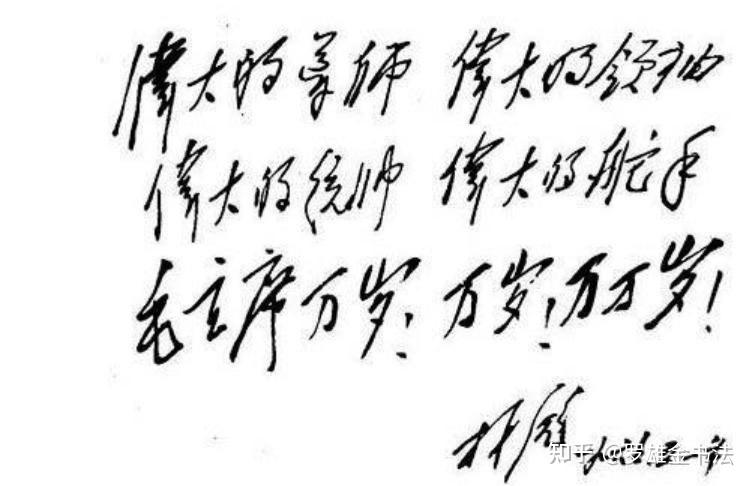 偉大的导师 偉大的领袖
偉大的统帅 偉大的舵手
毛主席万岁！万岁！万万岁！
林彪
知乎 @罗雄金书法